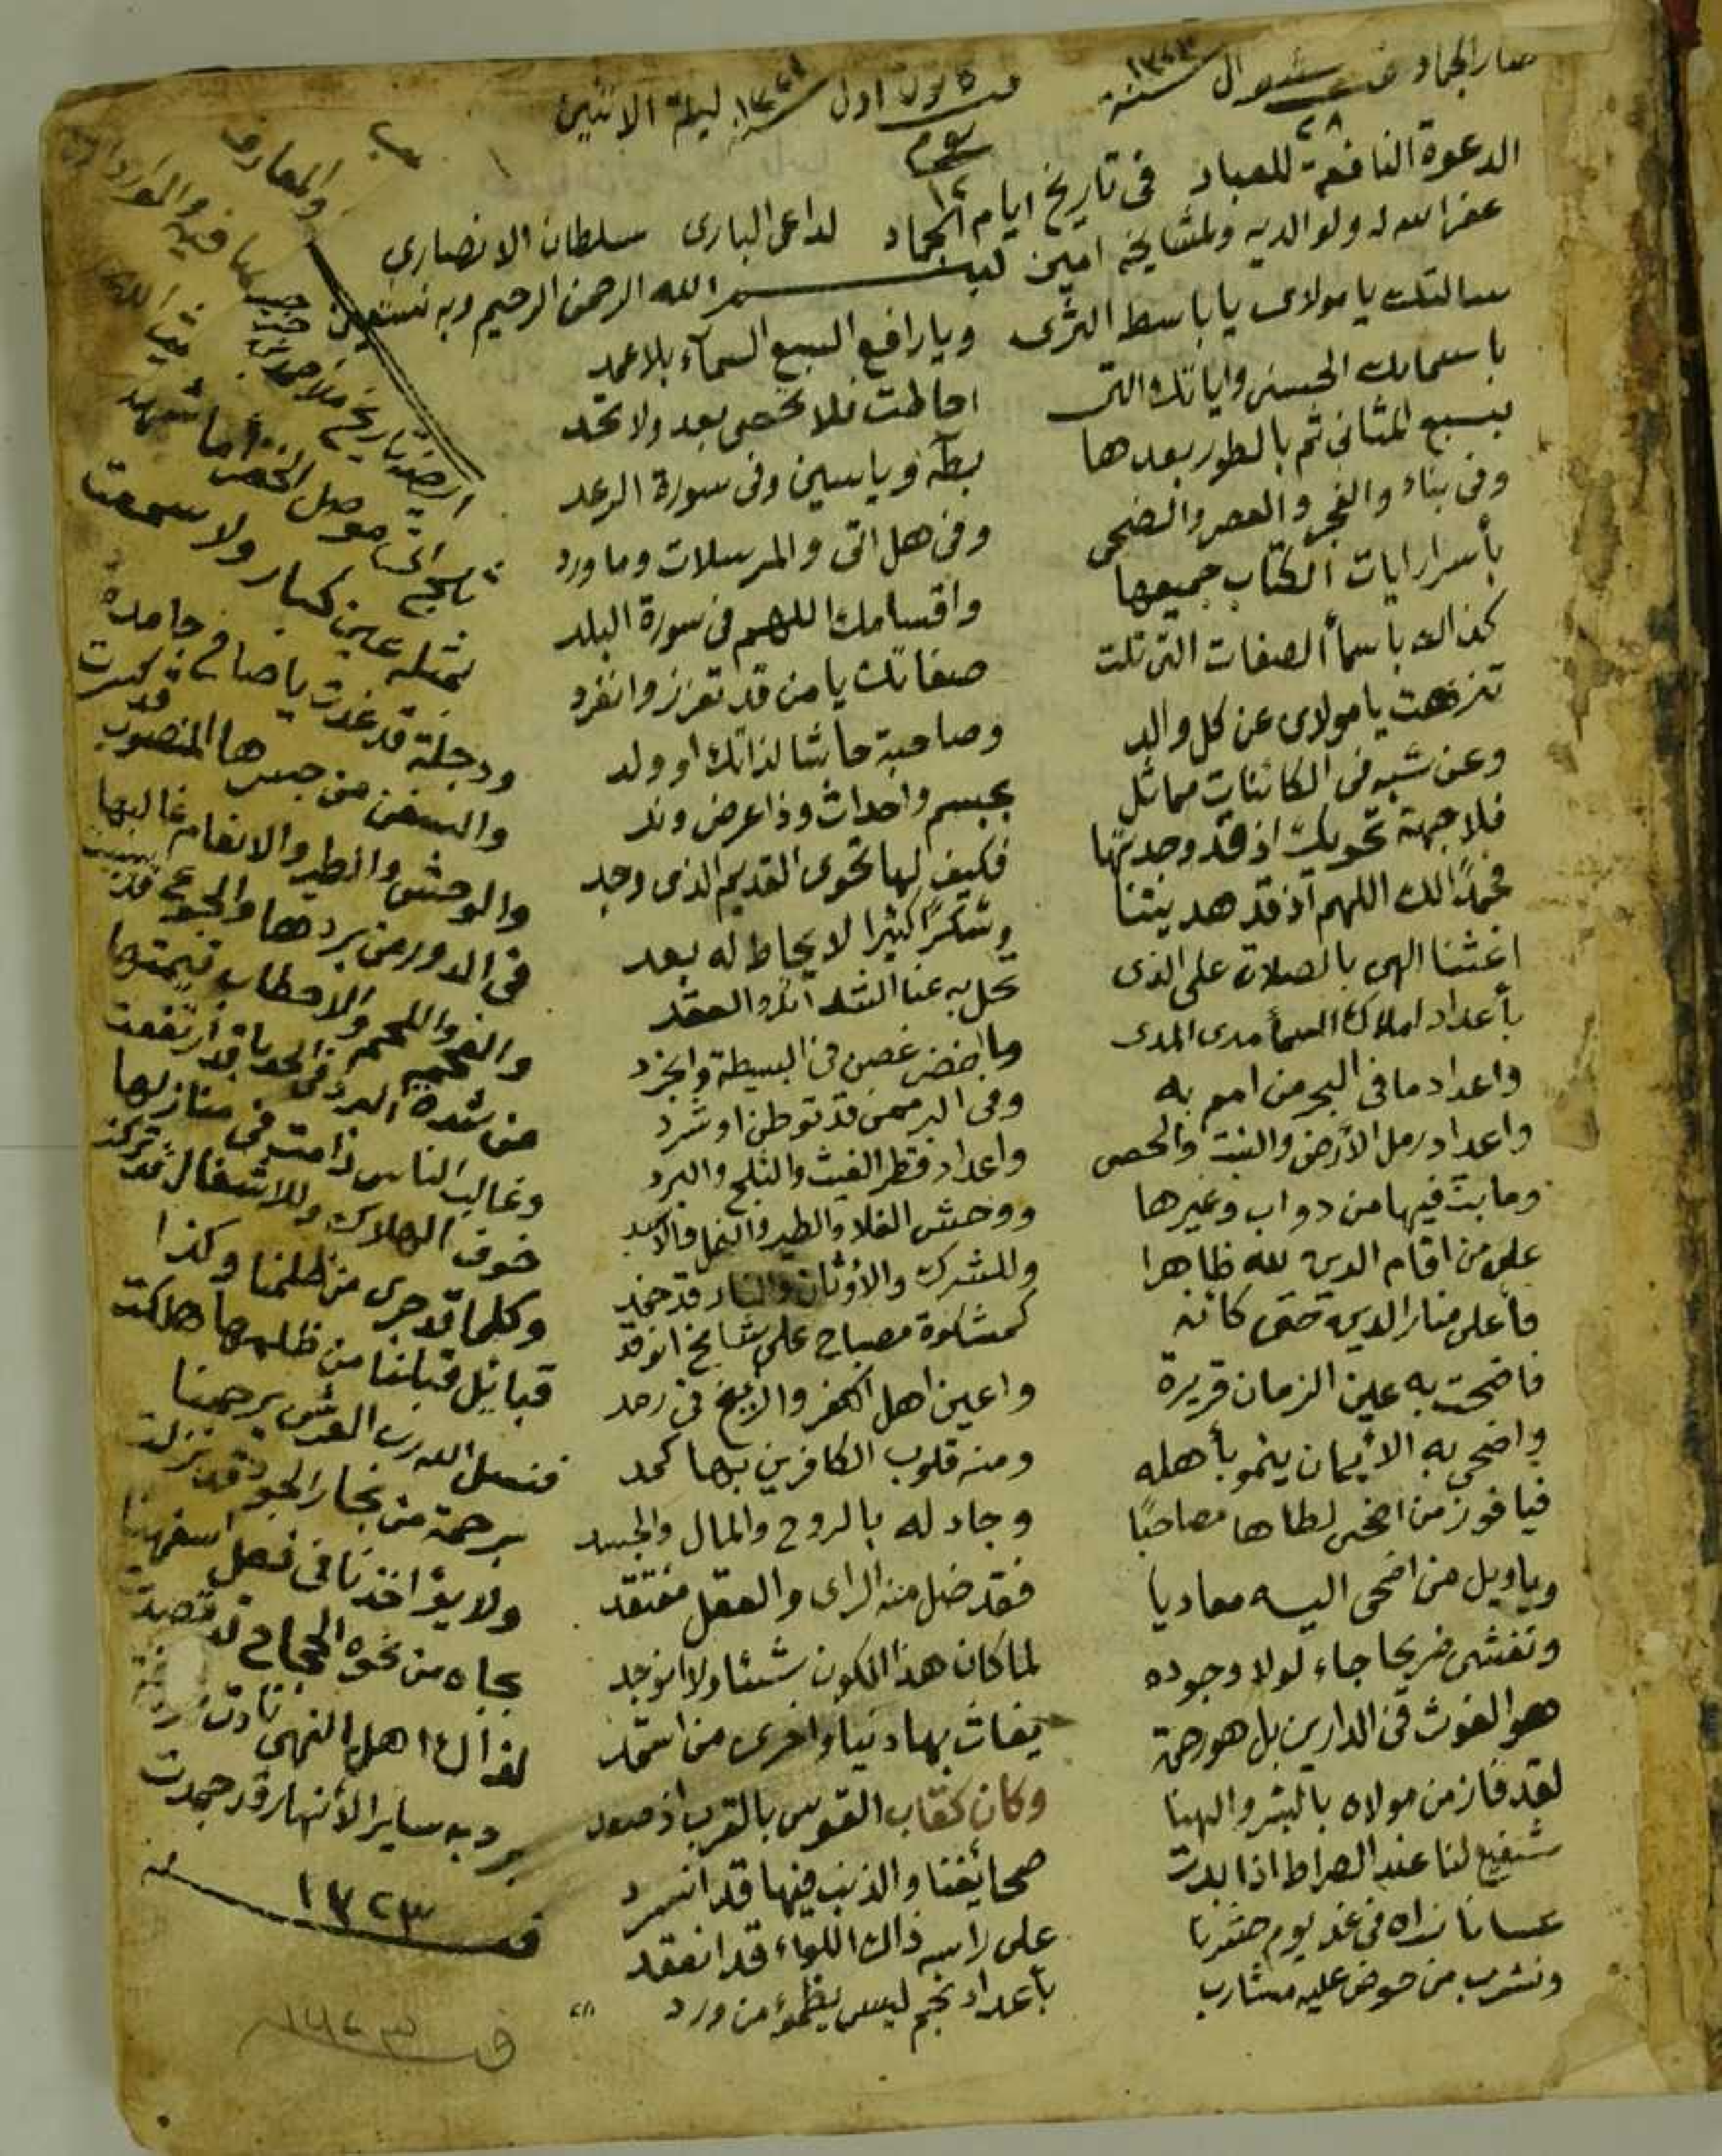 صار الجماد في شوال سنة ١٣٢٣
٢٨
في اول ليلة الاثنين
يوم ١٢
الدعوة النافعة للعباد في تاريخ ايام الجماد لداعي الباري سلطان الانصاري
غفر الله له ولوالديه ولمشايخه امين بسم الله الرحمن الرحيم وبه نستعين
سالتك يا مولاي يا باسط الثرى ويا رافع السبع السمآء بلا عمد
باسمايك الحسنى واياتك التي احاطت فلا تحصى بعد ولا تحد
بسبع المثاني ثم بالطور بعدها بطه وياسين وفي سورة الرعد
وفي بناء والفجر والعصر والضحى وفي هل اتى والمرسلات وما ورد
بأسرار ايات الكتاب جميعها واقسامك اللهم في سورة البلد
كذالك باسمأ الصفات التي تلت صفاتك يا من قد تعزز وانفرد
تنزهت يا مولاي عن كل والد وصاحبة حاشا لذاتك او ولد
وعن شبه في الكائنات مماثل بجسم واحداث وذا عرض وند
فلا جهة تحويك اذ قد وجدتها فكيف لها تحوي القديم الذي وجد
فحمدًا لك اللهم اذ قد هديتنا وشكرًا كثيرا لا يحاط له بعد
اغثنا الهي بالصلاة على الذي تحل به عنا الشدائد والعقد
بأعداد املاك السمأ مدى المدى وما اخضر غصن في البسيطة وانجرد
واعداد ما في البحر من امم به وفي البر ممن قد توطن او شرد
واعداد رمل الأرض والنبت والحصى واعداد قطر الغيث والثلج والبرد
وما بث فيها من دواب وغيرها ووحش الفلا والطير والنمل والاسد
على من اقام الدين لله ظاهرا وللشرك والأوثان والنار قد خمد
فأعلى منار الدين حتى كأنه كمشكوة مصباح على شامخ اتوقد
فاضحت به عين الزمان قريرة واعين اهل الكفر والزيغ في رمد
واضحى به الايمان ينمو بأهله ومنه قلوب الكافرين بها كمد
فيا فوز من اضحى لطاها مصاحبًا وجاد له بالروح والمال والجسد
ويا ويل من اضحى اليه معاديا فقد ضل منه الراي والعقل مفتقد
لولا وجوده لما كان هذا الكون شيئا ولا انوجد
هو الغوث في الدارين بل هو رحمة يغاث بها دنيا واخرى من استمد
لقد فاز من مولاه بالبشر والهنا وكان كقاب القوس بالقرب اذ صعد
شفيع لنا عند الصراط اذا بدت صحائفنا والذنب فيها قد انسرد
عسانا نراه في غد يوم حشرنا على راسه ذاك اللواء قد انعقد
ونشرب من حوض عليه مشارب بأعداد نجم ليس يظمؤ من ورد
والمعارف
ايضا تاريخ
موصل الخضرا ما شهد
بمثله عين كبار ولا سمعت
ودجلة قد غدت يا صاح جامدة
والسفن من جسرها المنصوب قد كسرت
والوحش والطير والانعام غالبها
في الدور من بردها والجوع قد
والفحم واللحم والاحطاب قيمتها
من شدة البرد في الحدباء قد ارتفعت
وغالب الناس دامت في منازلها
خوف الهلاك وللاشغال قد تركت
وكلما قد جرى من ظلمنا وكذا
قبائل قبلنا من ظلمها هلكت
فنسل الله رب العرش يرحمنا
برحمة من بحار الجود قد نزلت
ولا يؤاخذنا في فعل اسفهنا
بجاه من نحوه الحجاج قد قصدت
لذاك اهل النهى نادت
برد به ساير الأنهار قد جمدت
في سنة ١٣٢٣
في ١٣٢٣